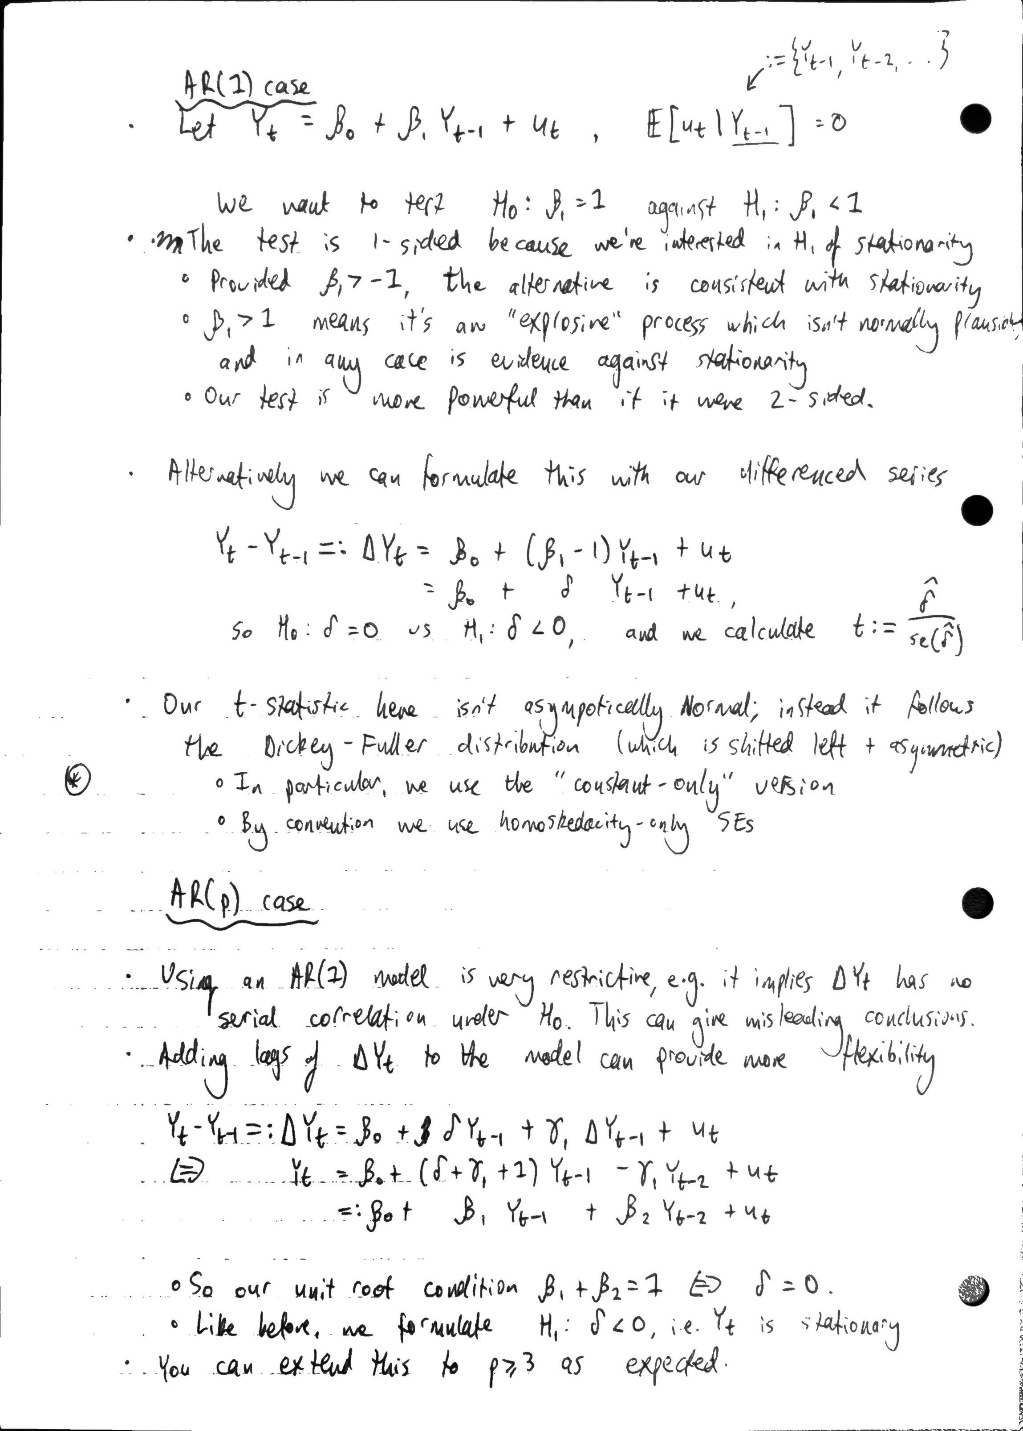 := {Y_{t-1}, Y_{t-2}, ...}
AR(1) case
· Let Y_t = β_0 + β_1 Y_{t-1} + u_t , E[u_t | Y_{t-1}] = 0
We want to test H_0: β_1 = 1 against H_1: β_1 < 1
· The test is 1-sided because we're interested in H_1 of stationarity
∘ Provided β_1 > -1, the alternative is consistent with stationarity
∘ β_1 > 1 means it's an "explosive" process which isn't normally plausible,
and in any case is evidence against stationarity
∘ Our test is more powerful than if it were 2-sided.
· Alternatively we can formulate this with our differenced series
Y_t - Y_{t-1} =: ΔY_t = β_0 + (β_1 - 1) Y_{t-1} + u_t
= β_0 + δ Y_{t-1} + u_t,
so H_0: δ = 0 vs H_1: δ < 0, and we calculate t := δ̂ / se(δ̂)
· Our t-statistic here isn't asympotically Normal; instead it follows
the Dickey-Fuller distribution (which is shifted left + asymmetric)
(*) ∘ In particular, we use the "constant-only" version
∘ By convention we use homoskedacity-only SEs
AR(p) case
· Using an AR(1) model is very restrictive, e.g. it implies ΔY_t has no
serial correlation under H_0. This can give misleading conclusions.
· Adding lags of ΔY_t to the model can provide more flexibility
Y_t - Y_{t-1} =: ΔY_t = β_0 + δ Y_{t-1} + γ_1 ΔY_{t-1} + u_t
⇔ Y_t = β_0 + (δ + γ_1 + 1) Y_{t-1} - γ_1 Y_{t-2} + u_t
=: β_0 + β_1 Y_{t-1} + β_2 Y_{t-2} + u_t
∘ So our unit root condition β_1 + β_2 = 1 ⇔ δ = 0.
∘ Like before, we formulate H_1: δ < 0, i.e. Y_t is stationary
· You can extend this to p ≥ 3 as expected.